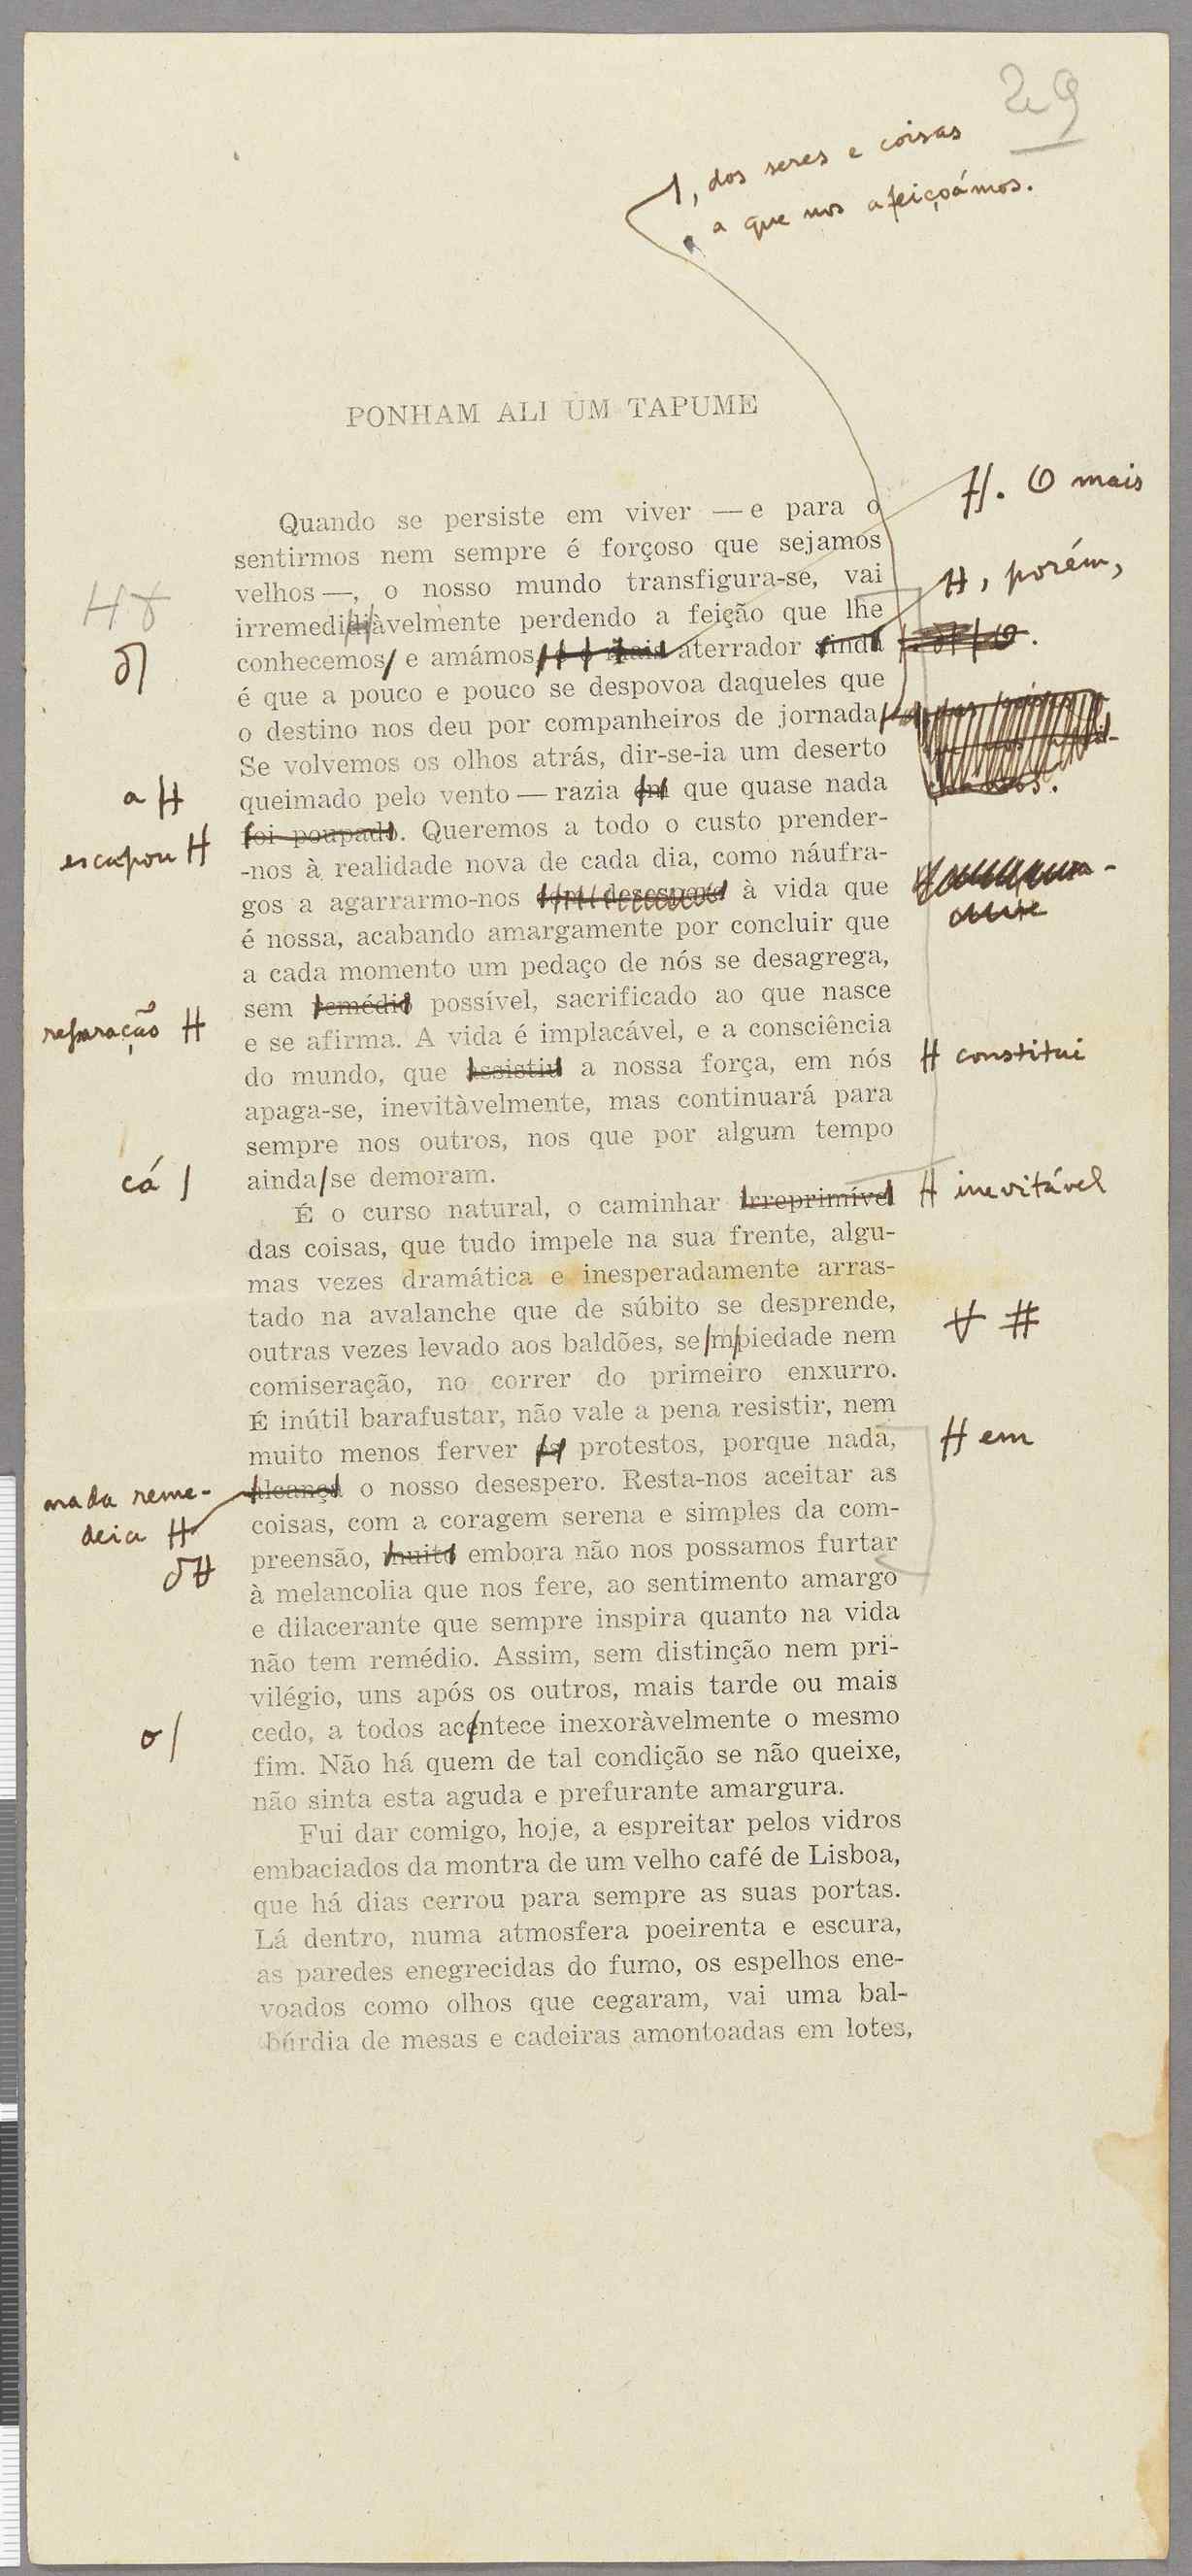 29
, dos seres e coisas
a que nos afeiçoámos.
PONHAM ALI UM TAPUME
Quando se persiste em viver — e para o
. O mais
sentirmos nem sempre é forçoso que sejamos
velhos —, o nosso mundo transfigura-se, vai
, porém,
irremediàvelmente perdendo a feição que lhe
conhecemos, e amámos, e o mais aterrador ainda
é que a pouco e pouco se despovoa daqueles que
o destino nos deu por companheiros de jornada
Se volvemos os olhos atrás, dir-se-ia um deserto
a
queimado pelo vento — razia em que quase nada
escapou
foi poupado. Queremos a todo o custo prender-
-nos à realidade nova de cada dia, como náufra-
gos a agarrarmo-nos com desespero à vida que
é nossa, acabando amargamente por concluir que
a cada momento um pedaço de nós se desagrega,
reparação
sem remédio possível, sacrificado ao que nasce
e se afirma. A vida é implacável, e a consciência
do mundo, que assistiu a nossa força, em nós
constitui
apaga-se, inevitàvelmente, mas continuará para
sempre nos outros, nos que por algum tempo
cá
ainda se demoram.
É o curso natural, o caminhar irreprimível
inevitável
das coisas, que tudo impele na sua frente, algu-
mas vezes dramática e inesperadamente arras-
tado na avalanche que de súbito se desprende,
#
outras vezes levado aos baldões, sem piedade nem
comiseração, no correr do primeiro enxurro.
É inútil barafustar, não vale a pena resistir, nem
muito menos ferver protestos, porque nada,
em
nada reme-
deia
alcança o nosso desespero. Resta-nos aceitar as
coisas, com a coragem serena e simples da com-
preensão, muito embora não nos possamos furtar
à melancolia que nos fere, ao sentimento amargo
e dilacerante que sempre inspira quanto na vida
não tem remédio. Assim, sem distinção nem pri-
vilégio, uns após os outros, mais tarde ou mais
o
cedo, a todos acentece inexoràvelmente o mesmo
fim. Não há quem de tal condição se não queixe,
não sinta esta aguda e prefurante amargura.
Fui dar comigo, hoje, a espreitar pelos vidros
embaciados da montra de um velho café de Lisboa,
que há dias cerrou para sempre as suas portas.
Lá dentro, numa atmosfera poeirenta e escura,
as paredes enegrecidas do fumo, os espelhos ene-
voados como olhos que cegaram, vai uma bal-
búrdia de mesas e cadeiras amontoadas em lotes,